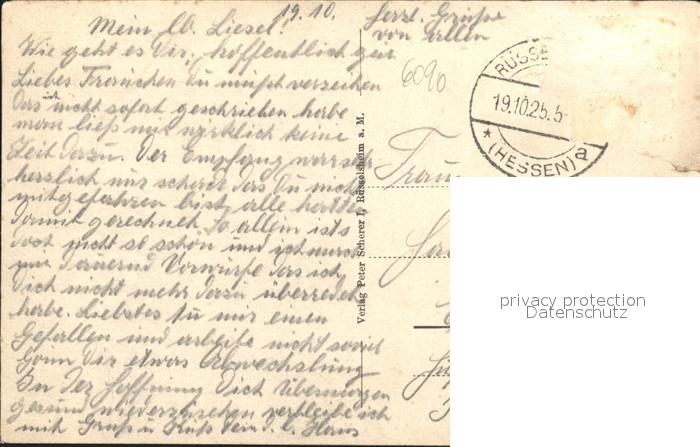 19.10.
Mein lb. Liesel!
Wie geht es Dir, hoffentlich gut
Liebes Frauchen Du mußt verzeihen
das ich nicht sofort geschrieben habe
man ließ mir wirklich keine
Zeit dazu. Der Empfang war sehr
herzlich nur schade das Du nicht
mitgefahren bist, alle hatten
damit gerechnet. So allein ists
doch nicht so schön und ich mache
mir dauernd Vorwürfe das ich
Dich nicht mehr dazu überredet
habe. Liebstes tu mir einen
Gefallen und arbeite nicht soviel
Gönn Dir etwas Abwechslung
In der Hoffnung Dich Übermorgen
gesund wiederzusehen verbleibe ich
mit Gruß u Kuß Dein d. l. Hans
Herzl. Grüße
von allen
6090
RÜSSE
19.10.25.5
* (HESSEN) a
Verlag Peter Scherer I, Rüsselsheim a. M.
Frau
privacy protection
Datenschutz